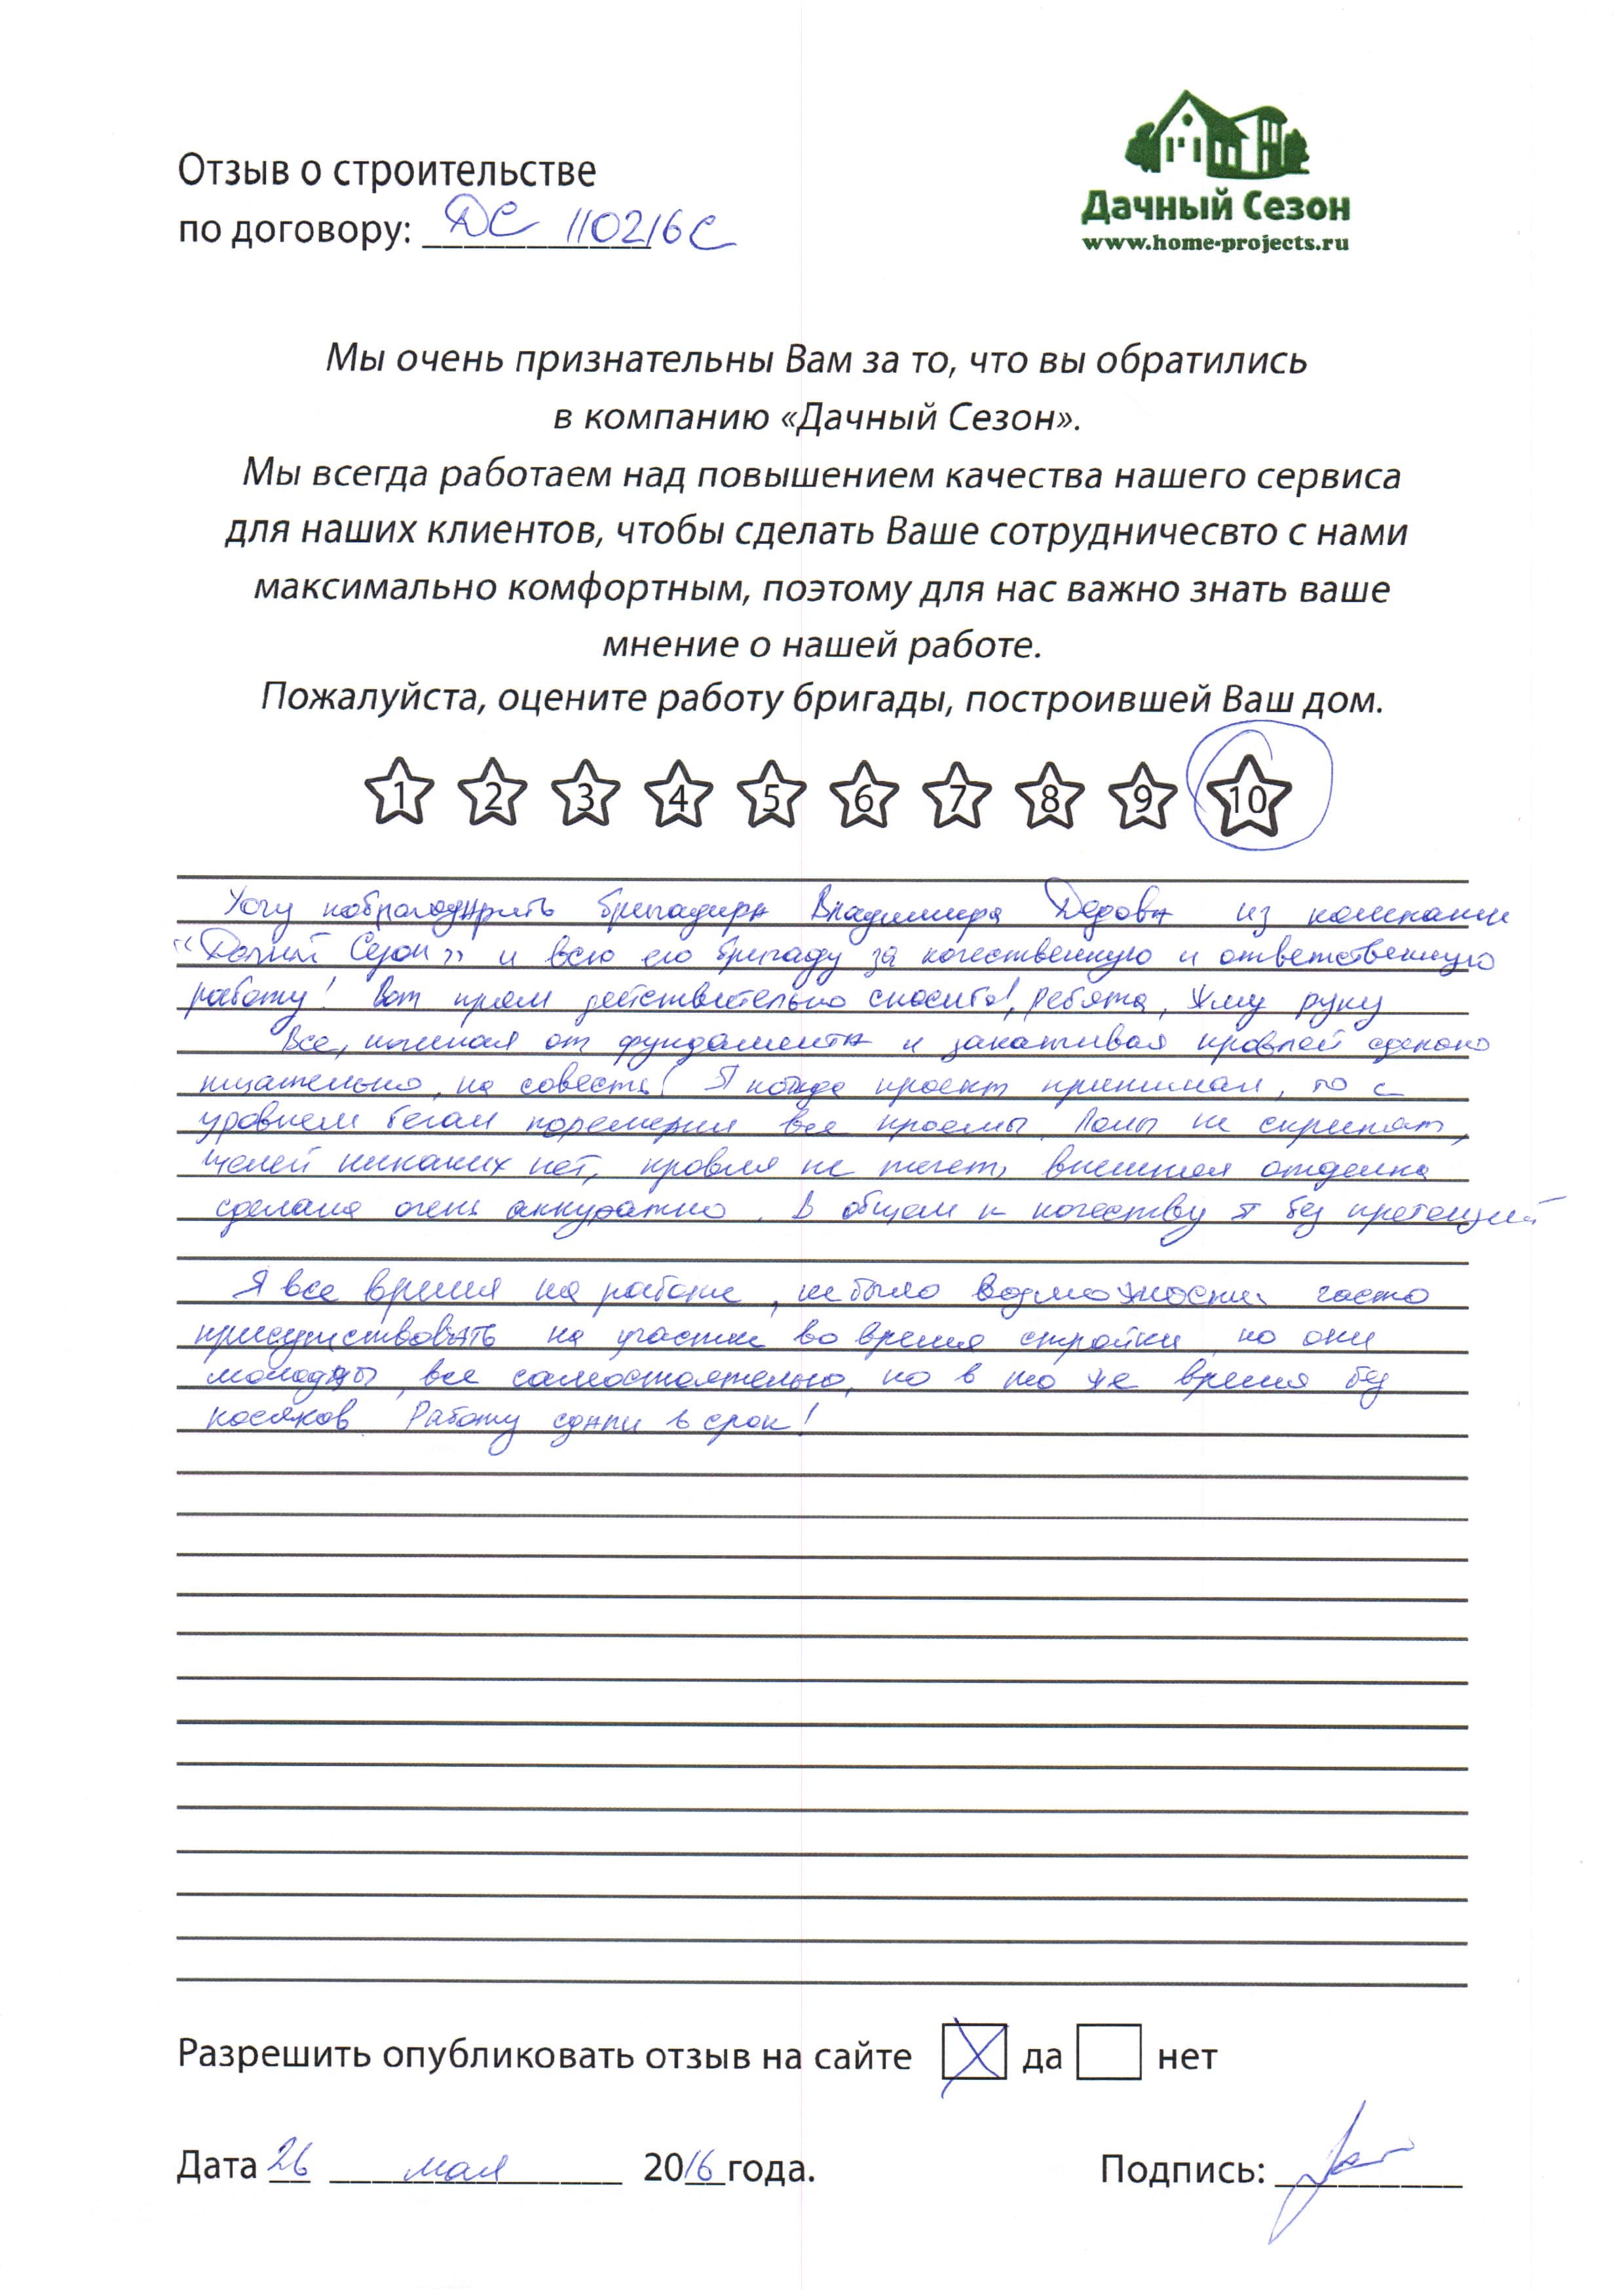 Отзыв о строительстве
по договору: ДС 110216С
Дачный Сезон
www.home-projects.ru
Мы очень признательны Вам за то, что вы обратились
в компанию «Дачный Сезон».
Мы всегда работаем над повышением качества нашего сервиса
для наших клиентов, чтобы сделать Ваше сотрудничесвто с нами
максимально комфортным, поэтому для нас важно знать ваше
мнение о нашей работе.
Пожалуйста, оцените работу бригады, построившей Ваш дом.
1 2 3 4 5 6 7 8 9 10
Хочу поблагодарить бригадира Владимира Дедова из компании
"Дачный Сезон" и всю его бригаду за качественную и ответственную
работу! Вот прям действительно спасибо!, ребята, жму руку
Все, начиная от фундамента и заканчивая кровлей сделано
тщательно, на совесть! Я когда проект принимал, то с
уровнем бегал перемерил все проемы. Полы не скрипят,
щелей никаких нет, кровля не течет, внешняя отделка
сделана очень аккуратно. В общем к качеству я без претензий
Я все время на работе, не было возможности часто
присутствовать на участке во время стройки, но они
молодцы, все самостоятельно, но в то же время без
косяков. Работу сдали в срок!
Разрешить опубликовать отзыв на сайте X да нет
Дата 26 мая 2016 года. Подпись: